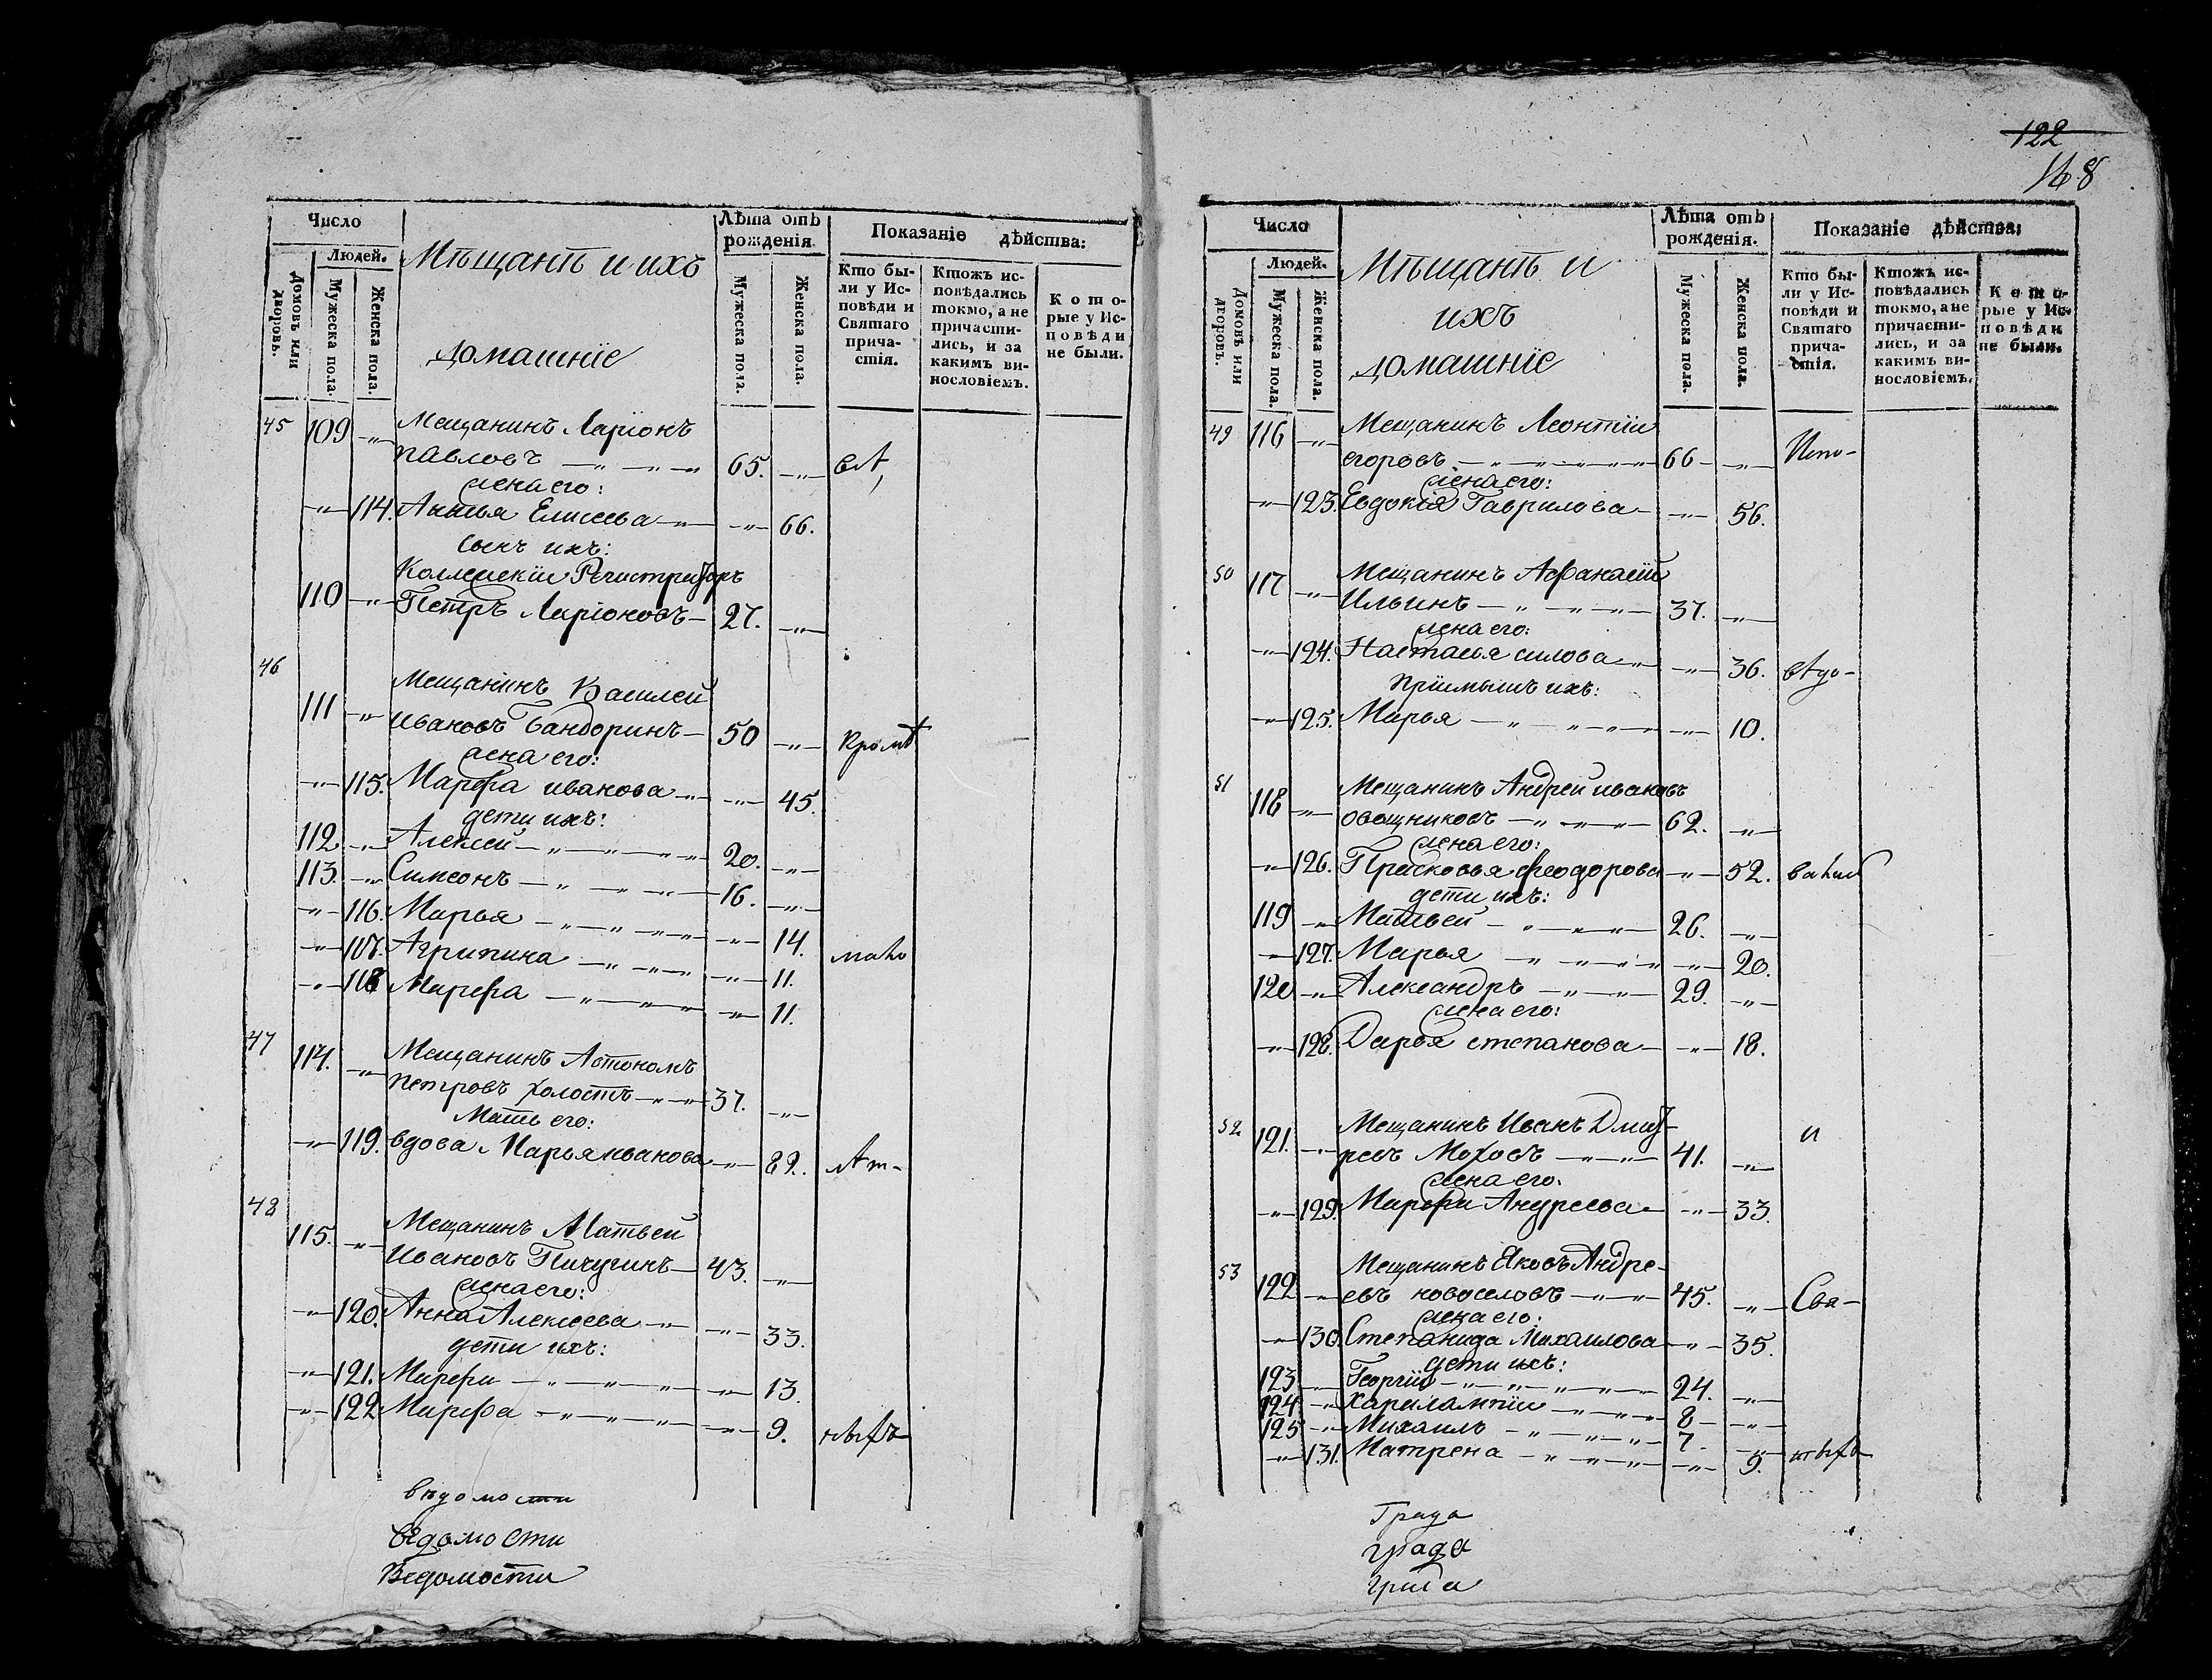 Число
Людей.
Домовъ или дворовъ.
Мужеска пола.
Женска пола.
Мѣщанѣ и ихъ
домашніе
Лѣта отъ рожденія
Мужеска пола.
Женска пола.
Показаніе дѣйства:
Кто бы-
ли у Ис-
повѣди и
Святаго
прича-
стія.
Ктожъ ис-
повѣдались
токмо, а не
причасти-
лись, и за
какимъ ви-
нословіемъ.
Кото-
рые у Ис-
повѣди
не были.
45 109 —„— Мещанинъ Ларіонъ
павловъ —„— 65. —„—
жена его:
—„— 114. Анна Елисеева —„— —„— 66.
сынъ ихъ:
Коллежскій Регистраторъ
110 —„— Петръ Ларіоновъ — 27. —„—
46
Мещанинъ Василей
111 —„— ивановъ Бандоринъ — 50 —„— кромѣ
жена его:
—„— 115. Марфа иванова —„— —„— 45.
дети ихъ:
112. —„— Алексей —„— 20. —„—
113. —„— Симеонъ —„— 16. —„—
—„— 116. Марья —„— —„— 14.
—„— 107. Агрипина —„— —„— 11. мало
—„— 118 Марфа —„— —„— 11.
47 114. —„— Мещанинъ Автономъ
петровъ холостъ —„— 37. —„—
Мать его:
—„— 119. вдова Марья иванова —„— 82. лѣт-
48
115. —„— Мещанинъ Матвей
Ивановъ Пичугинъ — 43. —„—
жена его:
—„— 120. Анна Алексеева —„— —„— 33.
дети ихъ:
—„— 121. Марфа —„— —„— 13.
—„— 122 Марфа —„— —„— 9. ныхъ
вѣдомости
ведомости
Ведомости
122
148
Число
Людей.
Домовъ или дворовъ.
Мужеска пола.
Женска пола.
Мѣщанѣ и
ихъ
домашніе
Лѣта отъ рожденія.
Мужеска пола.
Женска пола.
Показаніе дѣйства:
Кто бы-
ли у Ис-
повѣди и
Святаго
прича-
стія.
Ктожъ ис-
повѣдались
токмо, а не
причасти-
лись, и за
какимъ ви-
нословіемъ.
Кото-
рые у Ис-
повѣди
не были.
49 116 —„— Мещанинъ Леонтіи
егоровъ —„— 66 —„— Испо-
жена его:
—„— 123. Евдокія Гаврилова — —„— 56.
50 117 —„— Мещанинъ Афанасій
Ильинъ —„— 37. —„—
жена его:
—„— 124. Настасья силова —„— —„— 36. вѣдо-
Пріимышъ ихъ:
—„— 125. Марья —„— —„— 10.
51 118 —„— Мещанинъ Андреи ивановъ
овощниковъ —„— 62. —„—
жена его:
—„— 126. Прасковья феодорова —„— 52. вались
дети ихъ:
119 —„— Матвеи —„— 26. —„—
—„— 127. Марья —„— —„— 20.
120 —„— Александръ —„— 29. —„—
жена его:
—„— 128. Дарья степанова — —„— 18.
52 121. —„— Мещанинъ Иванъ Дмит-
ревъ Моховъ —„— 41. —„— и
жена его.
—„— 129. Марфа Андреева — —„— 33.
53 122 —„— Мещанинъ Яковъ Андре-
евъ новоселовъ —„— 45. —„— Свя-
жена его:
—„— 130. Степанида Михаилова —„— 35.
дети ихъ:
123 —„— Георгіи —„— 24. —„—
124. —„— Харилампіи —„— 8 — —„—
125 —„— Михаилъ —„— 7. —„—
—„— 131. Матрена —„— —„— 5. тыхъ
Града
града
града